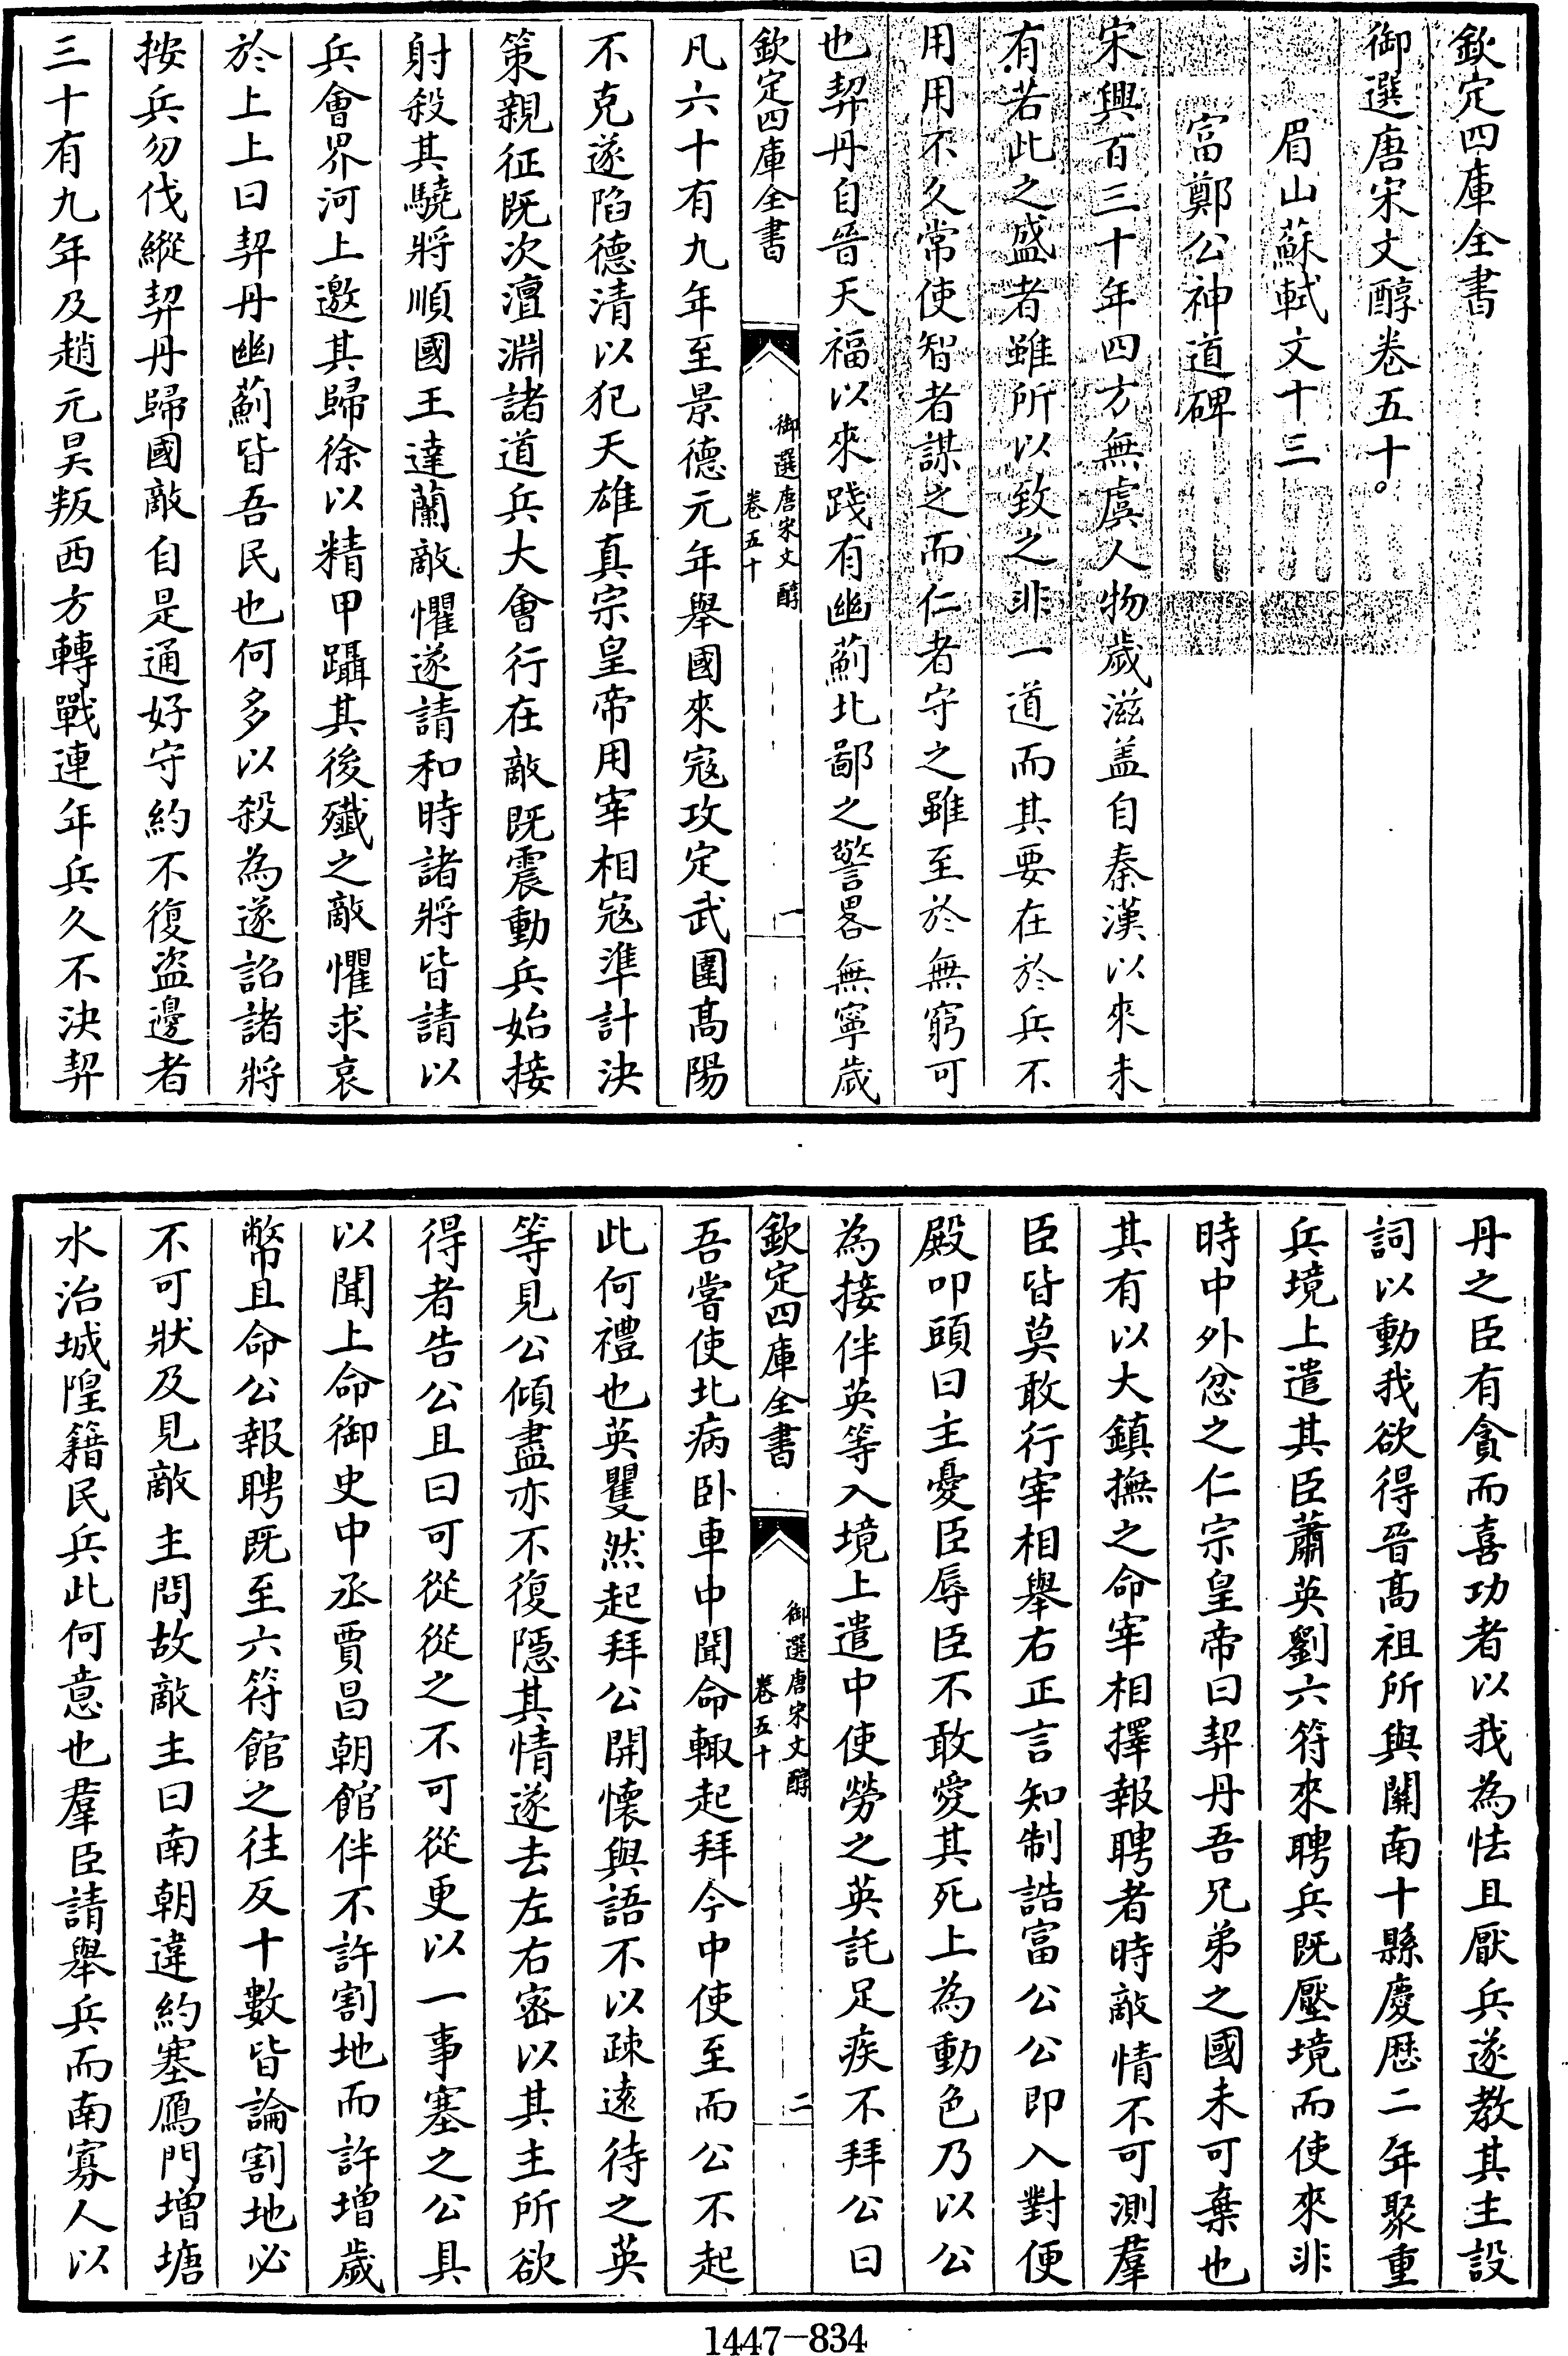 欽定四庫全書
御選唐宋文醇卷五十。
眉山蘇軾文十三
富鄭公神道碑
宋興百三十年四方無虞人物歲滋盖自秦漢以來未
有若此之盛者雖所以致之非一道而其要在於兵不
用用不久常使智者謀之而仁者守之雖至於無窮可
也契丹自晉天福以來踐有幽薊北鄙之警畧無寧歲
欽定四庫全書
御選唐宋文醇
卷五十
一
凡六十有九年至景德元年舉國來寇攻定武圍髙陽
不克遂陷德清以犯天雄真宗皇帝用宰相寇準計決
策親征既次澶淵諸道兵大會行在敵既震動兵始接
射殺其驍將順國王達蘭敵懼遂請和時諸將皆請以
兵會界河上邀其歸徐以精甲躡其後殲之敵懼求哀
於上上曰契丹幽薊皆吾民也何多以殺為遂詔諸將
按兵勿伐縱契丹歸國敵自是通好守約不復盜邊者
三十有九年及趙元昊叛西方轉戰連年兵久不決契
丹之臣有貪而喜功者以我為怯且厭兵遂教其主設
詞以動我欲得晉髙祖所與關南十縣慶歷二年聚重
兵境上遣其臣蕭英劉六符來聘兵既壓境而使來非
時中外忿之仁宗皇帝曰契丹吾兄弟之國未可棄也
其有以大鎮撫之命宰相擇報聘者時敵情不可測羣
臣皆莫敢行宰相舉右正言知制誥富公公即入對便
殿叩頭曰主憂臣辱臣不敢愛其死上為動色乃以公
為接伴英等入境上遣中使勞之英託足疾不拜公曰
欽定四庫全書
御選唐宋文醇
卷五十
二
吾嘗使北病卧車中聞命輙起拜今中使至而公不起
此何禮也英矍然起拜公開懷與語不以疎遠待之英
等見公傾盡亦不復隱其情遂去左右密以其主所欲
得者告公且曰可從從之不可從更以一事塞之公具
以聞上命御史中丞賈昌朝館伴不許割地而許增歲
幣且命公報聘既至六符館之往反十數皆論割地必
不可狀及見敵主問故敵主曰南朝違約塞鴈門增塘
水治城隍籍民兵此何意也羣臣請舉兵而南寡人以
1447-834